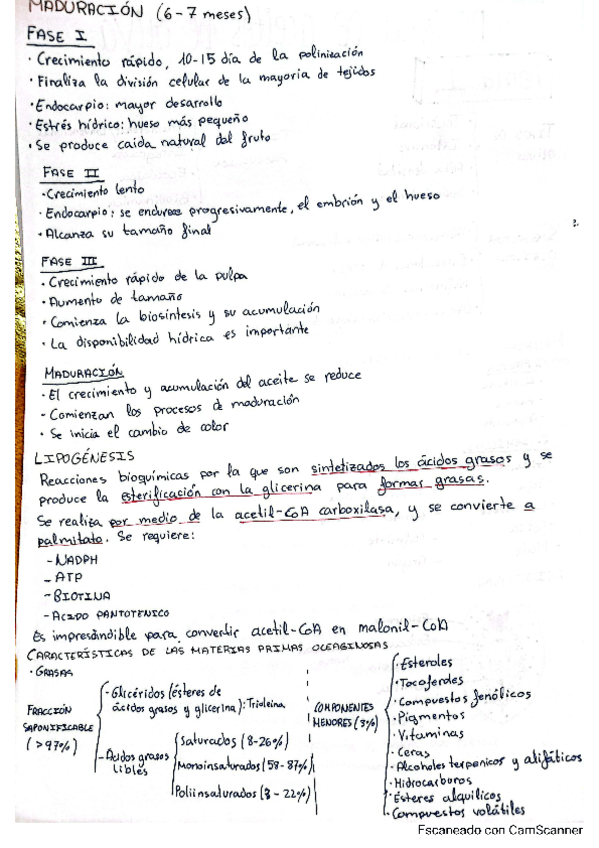 MADURACIÓN (6-7 meses)
FASE I
· Crecimiento rápido, 10-15 día de la polinización
· Finaliza la división celular de la mayoría de tejidos
· Endocarpio: mayor desarrollo
· Estrés hídrico: hueso más pequeño
· Se produce caida natural del fruto
FASE II
· Crecimiento lento
· Endocarpio: se endurece progresivamente, el embrión y el hueso
· Alcanza su tamaño final
FASE III
· Crecimiento rápido de la pulpa
· Aumento de tamaño
· Comienza la biosíntesis y su acumulación
· La disponibilidad hídrica es importante
MADURACIÓN
· El crecimiento y acumulación del aceite se reduce
- Comienzan los procesos de maduración
· Se inicia el cambio de color
LIPOGÉNESIS
Reacciones bioquímicas por la que son sintetizados los ácidos grasos y se
produce la esterificación con la glicerina para formar grasas.
Se realiza por medio de la acetil-CoA carboxilasa, y se convierte a
palmitato. Se requiere:
- NADPH
- ATP
- BIOTINA
- ACIDO PANTOTENICO
Es imprescindible para convertir acetil-CoA en malonil-CoA
CARACTERÍSTICAS DE LAS MATERIAS PRIMAS OLEAGINOSAS
· GRASAS
FRACCIÓN
SAPONIFICABLE
(>97%)
- Glicéridos (ésteres de
ácidos grasos y glicerina): Trioleina
- Ácidos grasos
libles
Saturados (8-26%)
Monoinsaturados (58-87%)
Poliinsaturados (8-22%)
COMPONENTES
MENORES (3%)
· Esteroles
· Tocoferoles
· Compuestos fenólicos
· Pigmentos
· Vitaminas
· Ceras
· Alcoholes terpenicos y alifáticos
· Hidrocarburos
· Esteres alquilicos
· Compuestos volátiles
Escaneado con CamScanner